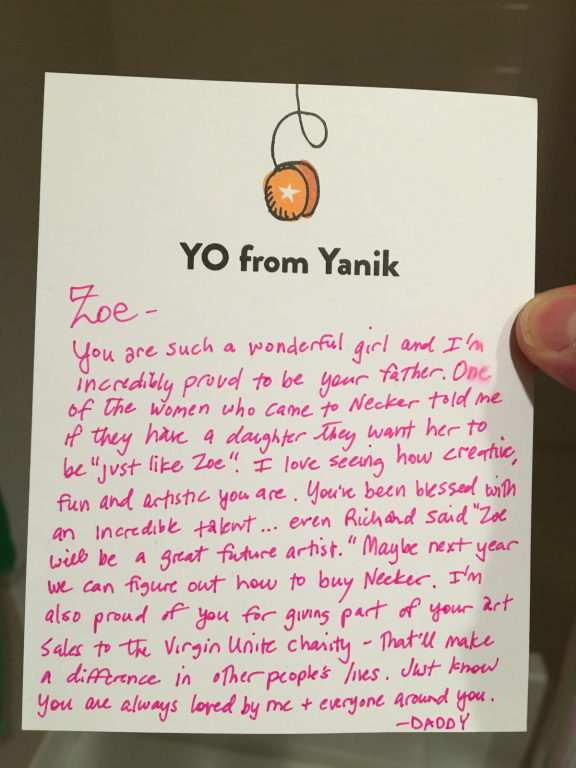 YO from Yanik
Zoe -
You are such a wonderful girl and I'm
incredibly proud to be your father. One
of the women who came to Necker told me
if they have a daughter they want her to
be "just like Zoe". I love seeing how creative,
fun and artistic you are. You've been blessed with
an incredible talent... even Richard said "Zoe
will be a great future artist." Maybe next year
we can figure out how to buy Necker. I'm
also proud of you for giving part of your art
sales to the Virgin Unite charity - That'll make
a difference in other people's lives. Just know
you are always loved by me + everyone around you.
-DADDY